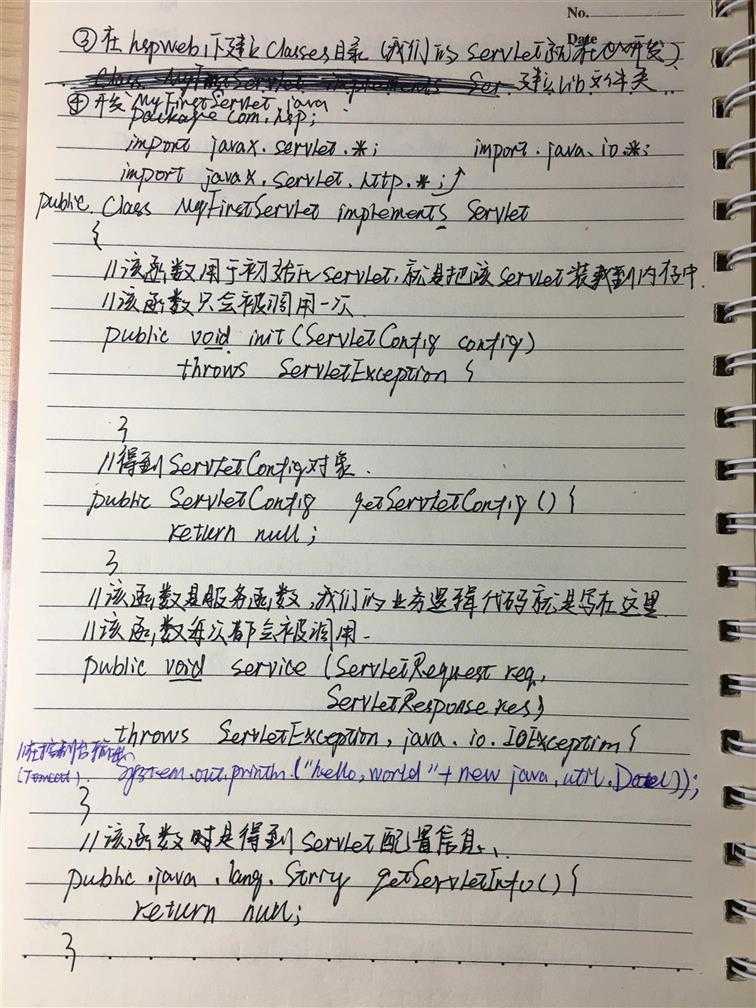 No.
Date
③在hspweb1下建立classes目录(我们的Servlet就在此开发)
建立lib文件夹
④开发MyFirstServlet.java
package com.hsp;
import javax.servlet.*; import.java.io.*;
import javax.servlet.http.*;
public Class MyFirstServlet implements Servlet
{
//该函数用于初始化servlet,就是把该servlet装载到内存中.
//该函数只会被调用一次
public void init(ServletConfig config)
throws ServletException {
}
//得到ServletConfig对象.
public ServletConfig getServletConfig(){
return null;
}
//该函数是服务函数,我们的业务逻辑代码就是写在这里
//该函数每次都会被调用.
public void service (ServletRequest req,
ServletResponse res)
throws ServletException, java.io.IOException {
//在控制台输出
(Tomcat). System.out.println.("hello,world"+new java.util.Date());
}
//该函数时是得到Servlet配置信息
public.java.lang.String getServletInfo(){
return null;
}